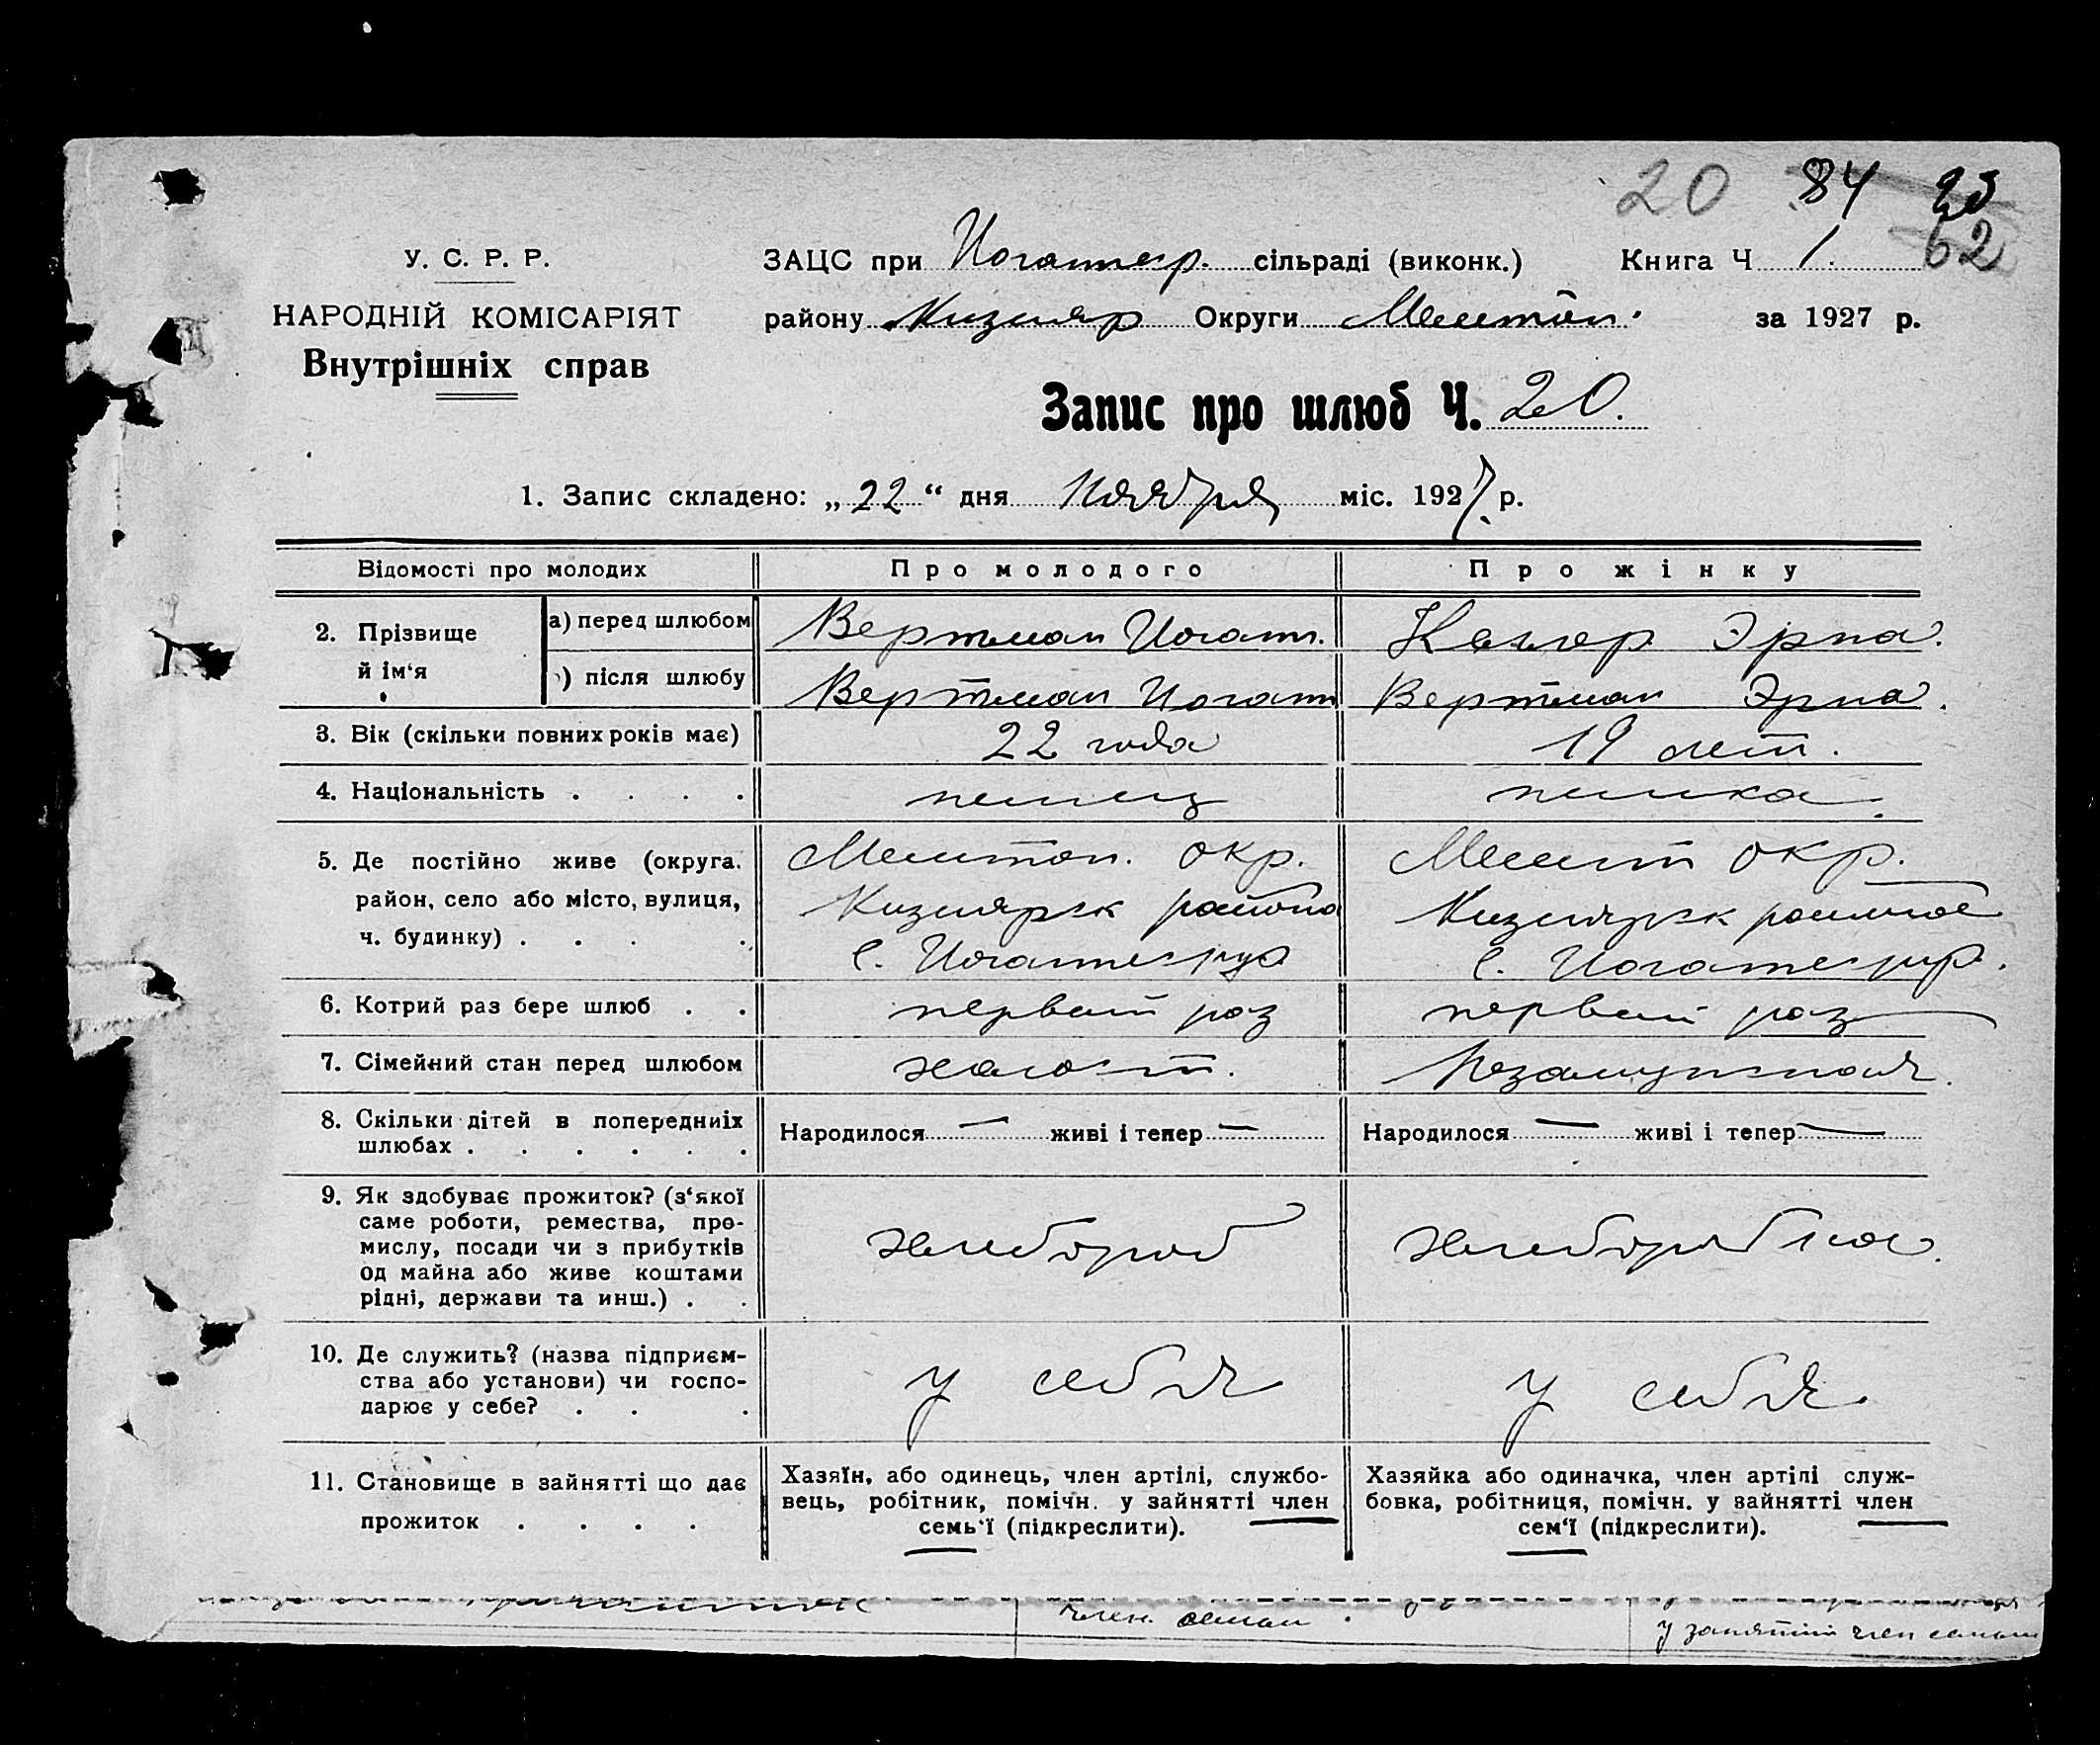 20 84
62
У. С. Р. Р.
НАРОДНІЙ КОМІСАРІЯТ
Внутрішніх справ
ЗАЦС при Иоганнеср. сільраді (виконк.) Книга Ч 1.
району Кизияр Округи Мелитоп. за 1927 р.
Запис про шлюб Ч. 20.
1. Запис складено: „22“ дня Ноября міс. 1927 р.
Відомості про молодих Про молодого Про жінку
2. Прізвище й ім‘я
а) перед шлюбом Вертман Иоган. Эрна.
) після шлюбу Вертман Иоган Вертман Эрна.
3. Вік (скільки повних років має) 22 года 19 лет.
4. Національність . . . . немец немка.
5. Де постійно живе (округа. Мелитоп. окр. Мелит окр.
район, село або місто, вулиця, Кизиярск района Кизиярск района
ч. будинку) . . . . с. Иоганнесру с. Иоганнеср.
6. Котрий раз бере шлюб . . первый раз первый раз
7. Сімейний стан перед шлюбом холост. Незамужная.
8. Скільки дітей в попередниіх
шлюбах . . . . . .
Народилося — живі і тепер — Народилося — живі і тепер —
9. Як здобуває прожиток? (з‘якої
саме роботи, ремества, про-
мислу, посади чи з прибутків
од майна або живе коштами
рідні, держави та инш.) . .
хлебороб хлеборобка.
10. Де служить? (назва підприєм-
ства або установи) чи госпо-
дарює у себе? . . .
у себя у себя.
11. Становище в зайнятті що дає
прожиток . . . .
Хазяїн, або одинець, член артілі, службо-
вець, робітник, помічн. у зайнятті член
семь‘ї (підкреслити).
Хазяйка або одиначка, член артілі служ-
бовка, робітниця, помічн. у зайнятті член
сем‘ї (підкреслити).
член семьи
у занятии член семьи